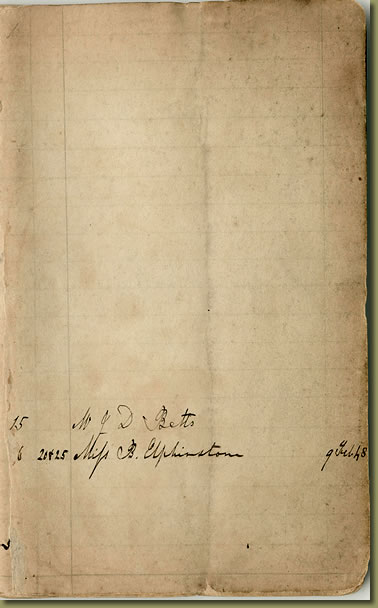 15 M J D Betts
6 20&25 Miss B. Elphinstone 9 Feb 48